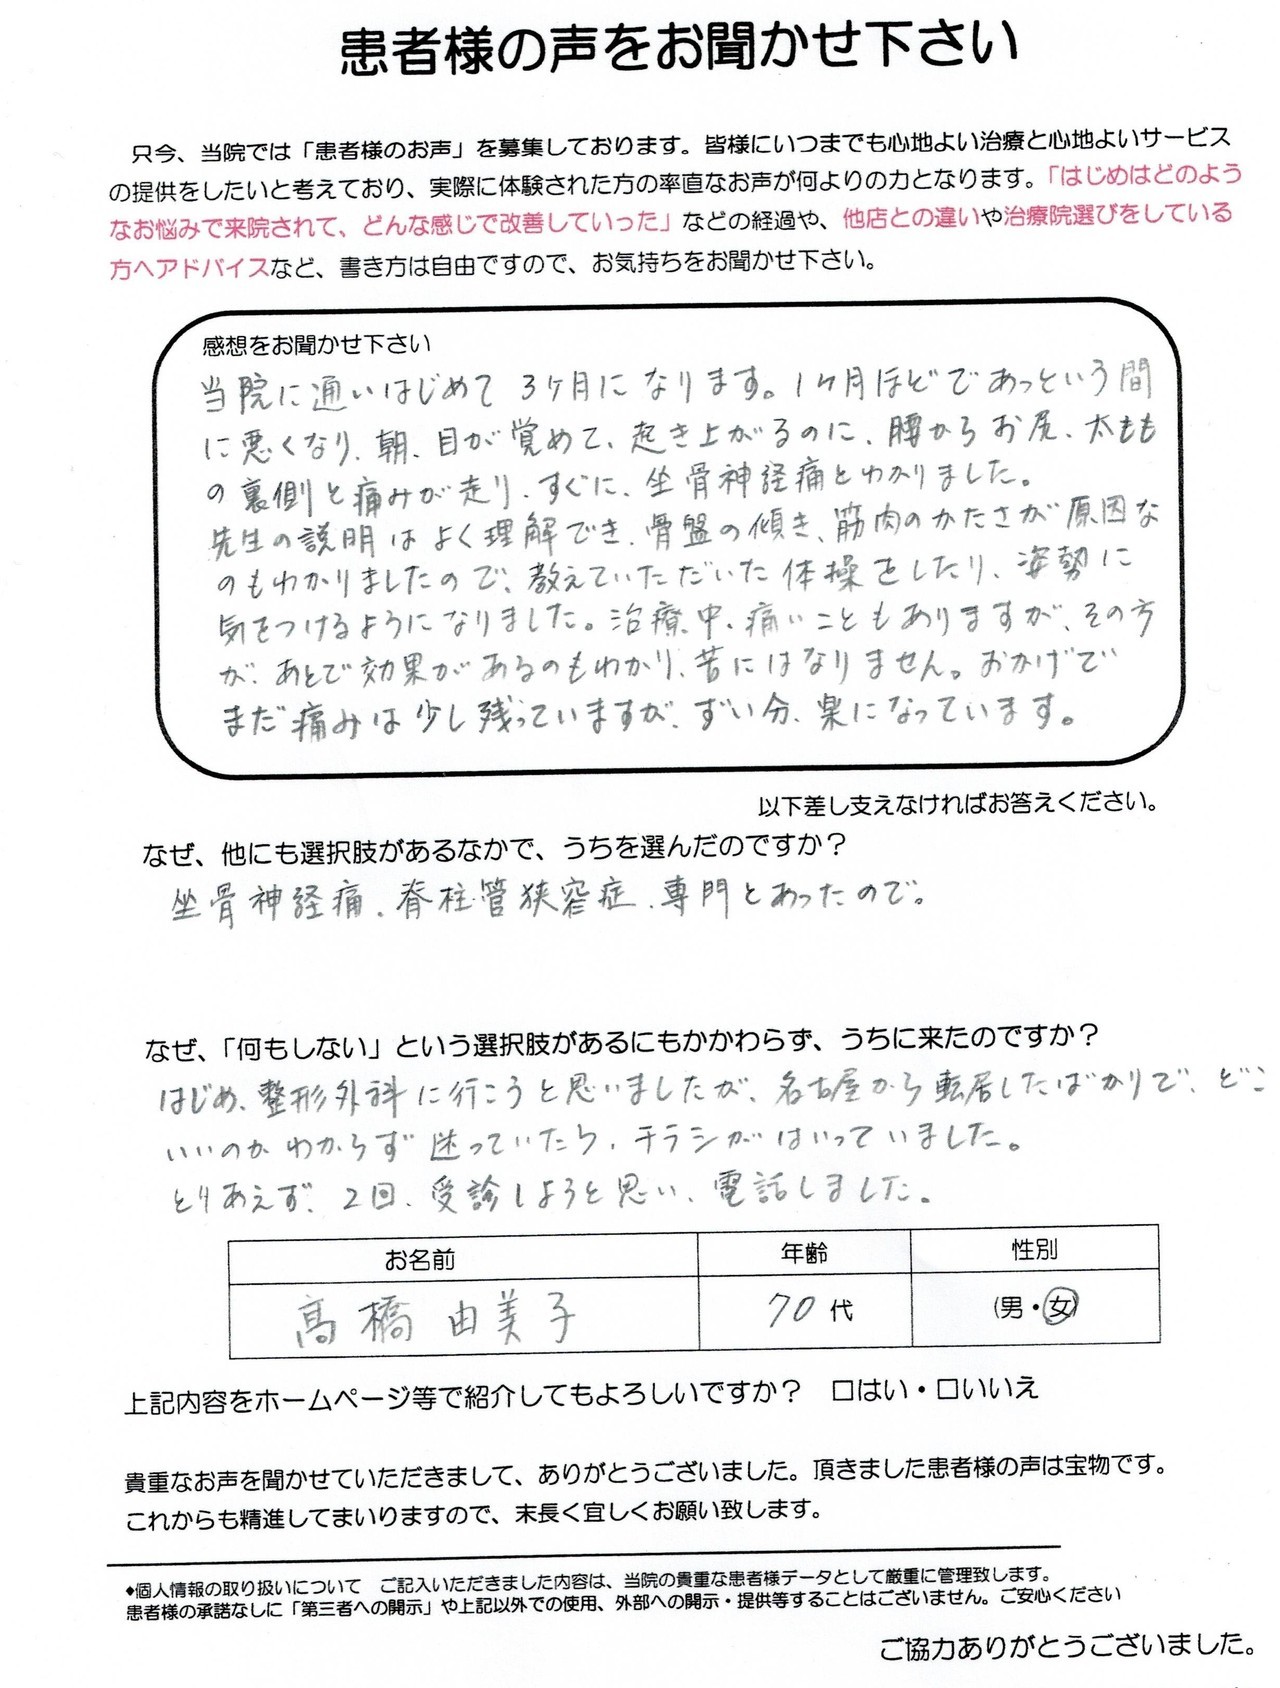 患者様の声をお聞かせ下さい
只今、当院では「患者様のお声」を募集しております。皆様にいつまでも心地よい治療と心地よいサービス
の提供をしたいと考えており、実際に体験された方の率直なお声が何よりの力となります。「はじめはどのよう
なお悩みで来院されて、どんな感じで改善していった」などの経過や、他店との違いや治療院選びをしている
方へアドバイスなど、書き方は自由ですので、お気持ちをお聞かせ下さい。
感想をお聞かせ下さい
当院に通いはじめて3ケ月になります。1ケ月ほどであっという間
に悪くなり、朝、目が覚めて、起き上がるのに、腰からお尻、太もも
の裏側と痛みが走り、すぐに、坐骨神経痛とわかりました。
先生の説明はよく理解でき、骨盤の傾き、筋肉のかたさが原因な
のもわかりましたので、教えていただいた体操をしたり、姿勢に
気をつけるようになりました。治療中、痛いこともありますが、その方
が、あとで効果があるのもわかり、苦にはなりません。おかげで
まだ痛みは少し残っていますが、ずい分、楽になっています。
以下差し支えなければお答えください。
なぜ、他にも選択肢があるなかで、うちを選んだのですか?
坐骨神経痛、脊柱管狭窄症、専門とあったので。
なぜ、「何もしない」という選択肢があるにもかかわらず、うちに来たのですか?
はじめ、整形外科に行こうと思いましたが、名古屋から転居したばかりで、どこ
いいのかわからず迷っていたら、チラシがはいっていました。
とりあえず、2回、受診しようと思い、電話しました。
お名前 年齢 性別
髙橋 由美子 70代 (男・女)
上記内容をホームページ等で紹介してもよろしいですか? □はい・□いいえ
貴重なお声を聞かせていただきまして、ありがとうございました。頂きました患者様の声は宝物です。
これからも精進してまいりますので、末長く宜しくお願い致します。
◆個人情報の取り扱いについて ご記入いただきました内容は、当院の貴重な患者様データとして厳重に管理致します。
患者様の承諾なしに「第三者への開示」や上記以外での使用、外部への開示・提供等することはございません。ご安心ください
ご協力ありがとうございました。